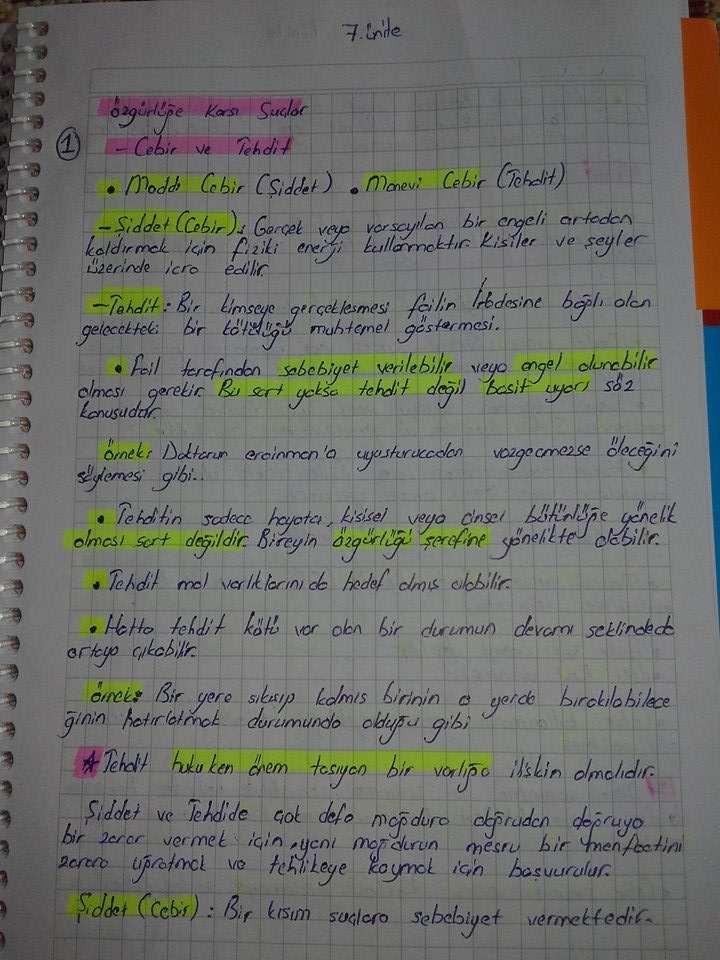 7. ünite
Özgürlüğe Karsı Suçlar
1
- Cebir ve Tehdit
• Maddi Cebir (Şiddet) • Manevi Cebir (Tehdit)
- Şiddet (Cebir): Gerçek veya varsayılan bir engeli ortadan
kaldırmak için fiziki enerji kullanmaktır. Kisiler ve şeyler
üzerinde icra edilir
- Tehdit: Bir kimseye gerçeklesmesi failin iradesine bağlı olan
gelecekteki bir kötülüğü muhtemel göstermesi.
• Fail tarafından sebebiyet verilebilir veya engel olunabilir
olması gerekir. Bu sart yoksa tehdit değil basit uyarı söz
konusudur.
örnek: Doktorun eroinman'a uyusturucudan vazgecmezse öleceğini
söylemesi gibi..
• Tehditin sadece hayata, kisisel veya cinsel bütünlüğe yönelik
olması sart değildir. Bireyin özgürlüğü şerefine yönelikte olabilir.
• Tehdit mal varlıklarını da hedef almıs olabilir.
• Hatta tehdit kötü var olan bir durumun devamı seklindede
ortaya çıkabilir.
örnek: Bir yere sıkısıp kalmıs birinin o yerde bırakılabilece
ğinin hatırlatmak durumunda olduğu gibi
★ Tehdit hukuken önem tasıyan bir varlığa iliskin olmalıdır.
Şiddet ve Tehdide çok defa mağdura doğrudan doğruya
bir zarar vermek için, yani mağdurun mesru bir menfaatini
zarara uğratmak ve tehlikeye koymak için başvurulur.
Şiddet (Cebir): Bir kısım suçlara sebebiyet vermektedir.